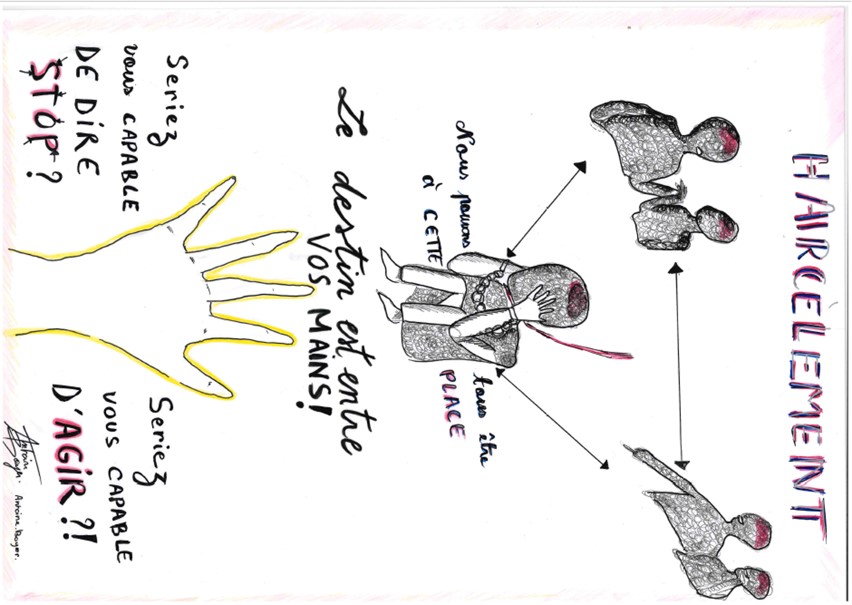 HARCÈLEMENT
Nous pouvons
tous être
à CETTE
PLACE
Le destin est entre
VOS MAINS!
Seriez
vous CAPABLE
DE DIRE
STOP ?
Seriez
vous CAPABLE
D'AGIR ?!
Antoine Boyer.